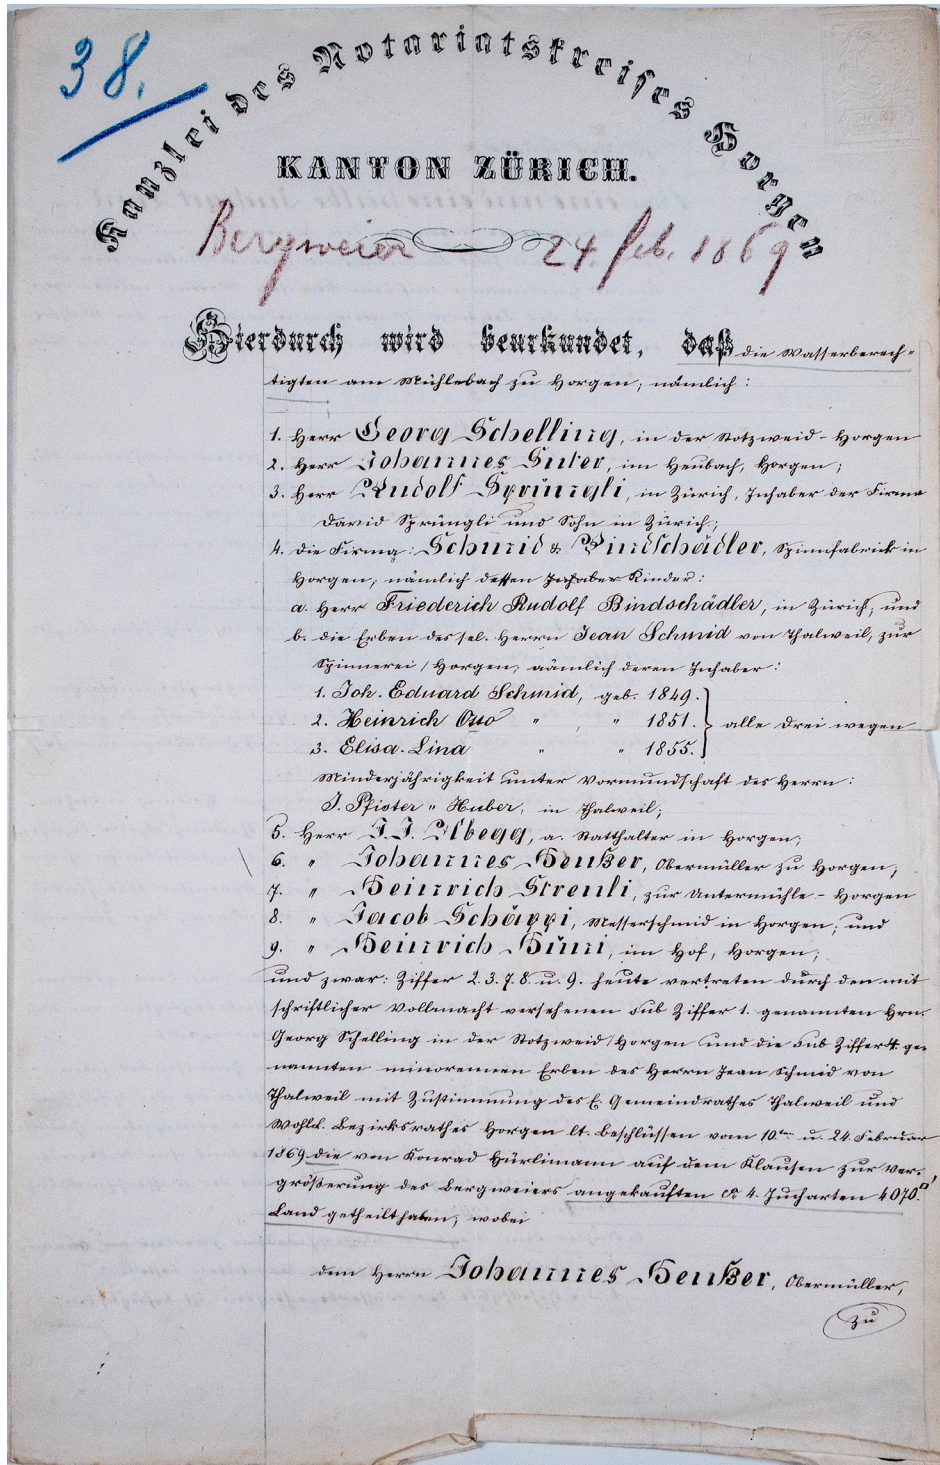 38.
Kanzlei des Notariatskreises Horgen
KANTON ZÜRICH.
Bergweier 24. Feb. 1869
Hierdurch wird beurkundet, daß die Wasserberech-
tigten am Mühlebach zu Horgen, nämlich:
1. Herr Georg Schelling, in der Stotzweid - Horgen
2. Herr Johannes Suter, im Heubach, Horgen;
3. Herr Rudolf Sprüngli, in Zürich, Inhaber der Firma
David Sprüngli und Sohn in Zürich;
4. die Firma: Schmid & Bindschädler, Spinnfabrick in
Horgen, nämlich dessen Inhaber Kinder:
a. Herr Friederich Rudolf Bindschädler, in Zürich, und
b. die Erben des sel. Herrn Jean Schmid von Thalweil, zur
Spinnerei / Horgen, nämlich deren Inhaber:
1. Joh. Eduard Schmid, geb. 1849.
2. Heinrich Otto " " 1851. } alle drei wegen
3. Elisa. Lina " " 1855.
Minderjährigkeit unter Vormundschaft des Herrn:
J. Pfister " Huber, in Thalweil;
5. Herr J. J. Abegg, a. Statthalter in Horgen;
6. " Johannes Henßer, Obermüller zu Horgen,
7. " Heinrich Streuli, zur Untermühle - Horgen
8. " Jacob Schäppi, Messerschmid in Horgen; und
9. " Heinrich Hüni, im Hof, Horgen,
und zwar: Ziffer 2. 3. 7. 8. u. 9. heute vertreten durch den mit
schriftlicher Vollmacht versehenen sub Ziffer 1. genannten Hrn.
Georg Schelling in der Stotzweid / Horgen und die sub Ziffer 4. ge-
nannten minorennen Erben des Herrn Jean Schmid von
Thalweil mit Zustimmung des E. Gemeindrathes Thalweil und
Wohll. Bezirksrathes Horgen lt. Beschlüssen vom 10.ten u. 24. Februar
1869 die von Konrad Hürlimann auf dem Klausen zur Ver-
größerung des Bergweiers angekauften 4. Jucharten 4070. □'
Land getheilt haben, wobei
dem Herrn Johannes Henßer, Obermüller,
zu